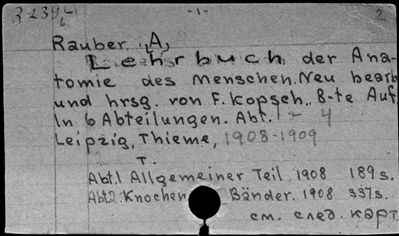 -1- 2
Rauber, A,
Lehrbuch der Ana-
tomie des Menschen. Neu bearb
und hrsg. von F. Kopsch.. 8-te Auf
In 6 Abteilungen. Abt. 1 - 4
Leipzig, Thieme, 1908-1909
T.
Abt.1 Allgemeiner Teil 1908 189 s.
Abt2: Knochen Bänder. 1908 337s.
см. след. карт